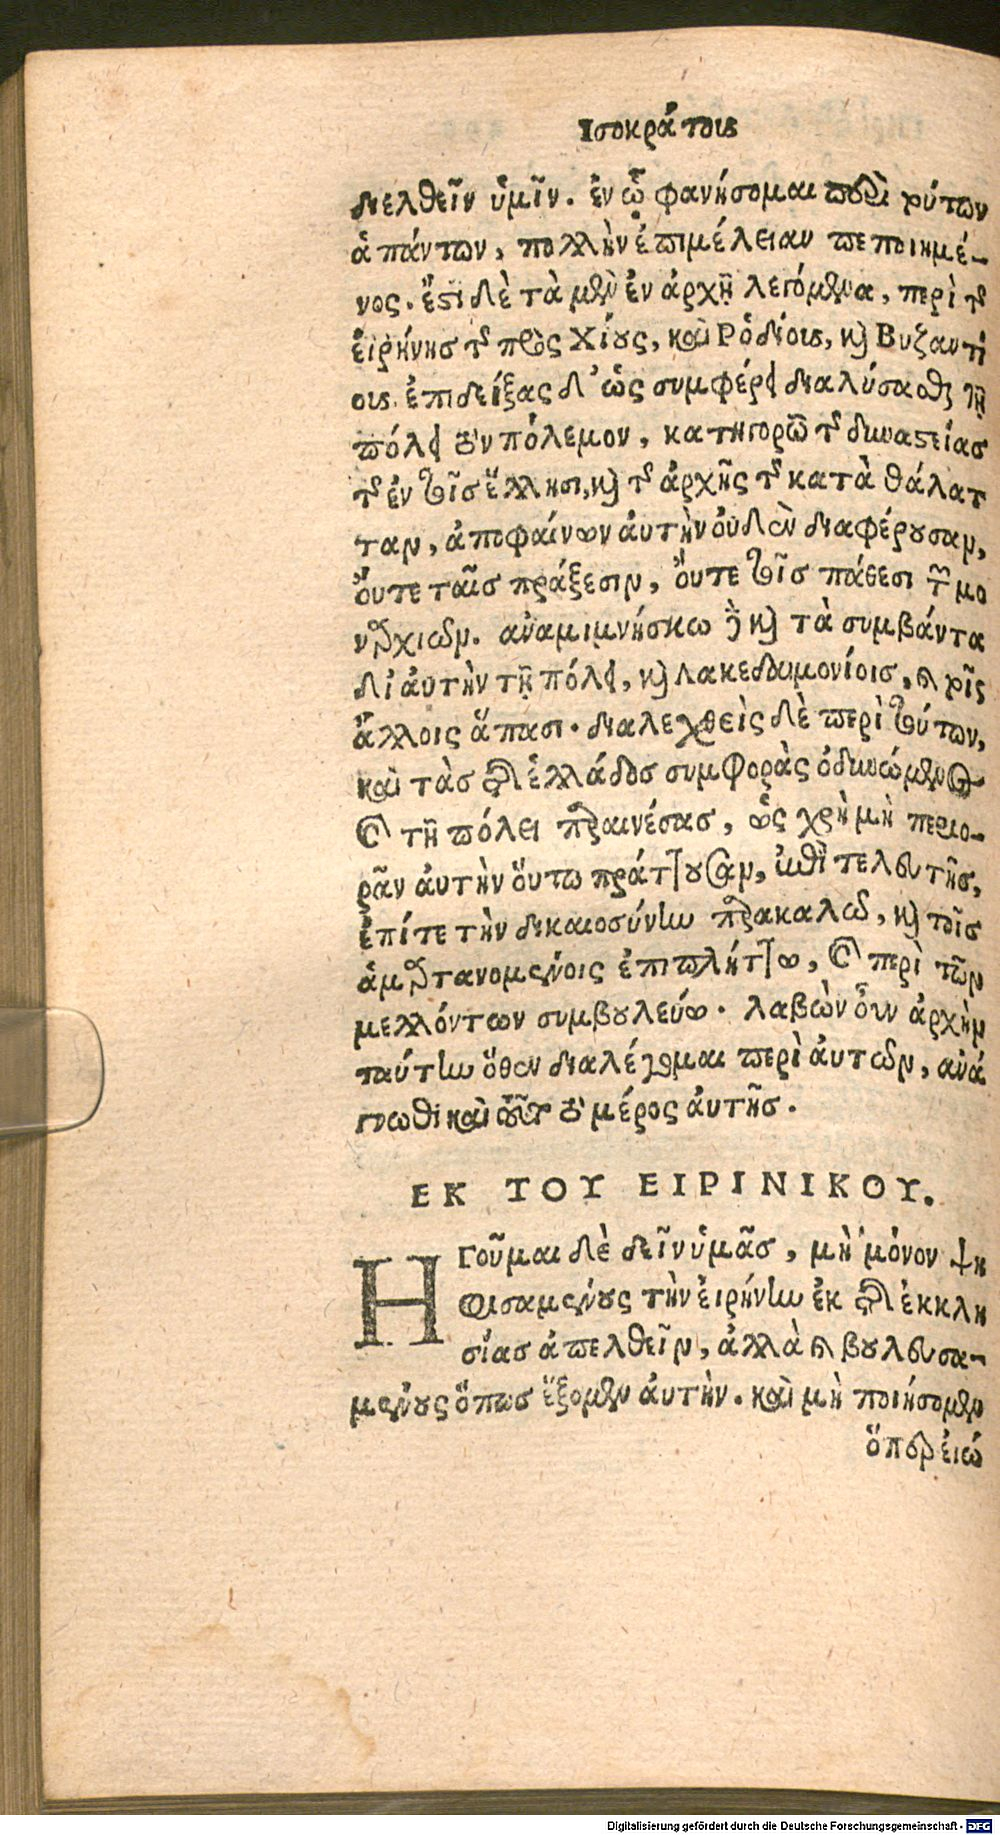 Ισοκράτοις
διελθεῖν ὑμῖν. ἐν ᾧ φανήσομαι περὶ τύτων
ἁπάντων, πολλὴν ἐπιμέλειαν πεποιημέ-
νος. ἔστι δὲ τὰ μὲν ἐν ἀρχῇ λεγόμενα, περὶ τῆς
εἰρήνησ τῆς πρὸς Χίους, καὶ Ροδίοις, καὶ Βυζαντί
οις. ἐπιδείξας δ' ὡς συμφέρει διαλύσασθαι τῇ
πόλει τὸν πόλεμον, κατηγορῶ τῆς δυναστείασ
τῆς ἐν τοῖσ ἕλλησι, καὶ τῆς ἀρχῆς τῆς κατὰ θάλατ
ταν, ἀποφαίνων ἀυτὴν οὐδὲν διαφέρουσαν,
ὄυτε ταῖσ πράξεσιν, ὄυτε τοῖσ πάθεσι τῶν μο
ναρχιῶν. ἀναμιμνήσκω δὲ καὶ τὰ συμβάντα
δι' ἀυτὴν τῇ πόλει, καὶ Λακεδαιμονίοισ, καὶ τοῖς
ἄλλοις ἅπασι. διαλεχθεὶς δὲ περὶ τούτων,
καὶ τὰσ τῆς ἑλλάδοσ συμφορὰς ὀδυνώμενος
καὶ τῇ πόλει παραινέσασ, ὡς χρὴ μὴ περιο-
ρᾶν ἀυτὴν ὅυτω πράττουσαν, ἐπὶ τελευτῆσ,
ἐπίτε τὴν δικαιοσύνην παρακαλῶ, καὶ τοῖσ
ἁμαρτανομένοις ἐπιπλήττω, καὶ περὶ τῶν
μελλόντων συμβουλεύω. λαβὼν ὀῦν ἀρχὴν
ταύτην ὅθεν διαλέγομαι περὶ ἀυτῶν, ἀνά
γνωθι καὶ τοῦτο τὸ μέρος ἀυτῆσ.
ΕΚ ΤΟΥ ΕΙΡΙΝΙΚΟΥ.
Ηγοῦμαι δὲ δεῖν ὑμᾶσ, μὴ μόνον ψη
φισαμένους τὴν ἐιρήνην ἐκ τῆς ἐκκλη
σίασ ἀπελθεῖν, ἀλλὰ καὶ βουλευσα-
μένους ὅπωσ ἕξομεν ἀυτὴν. καὶ μὴ ποιήσομεν
ὅπερ ἐιώ
Digitalisierung gefördert durch die Deutsche Forschungsgemeinschaft - DFG